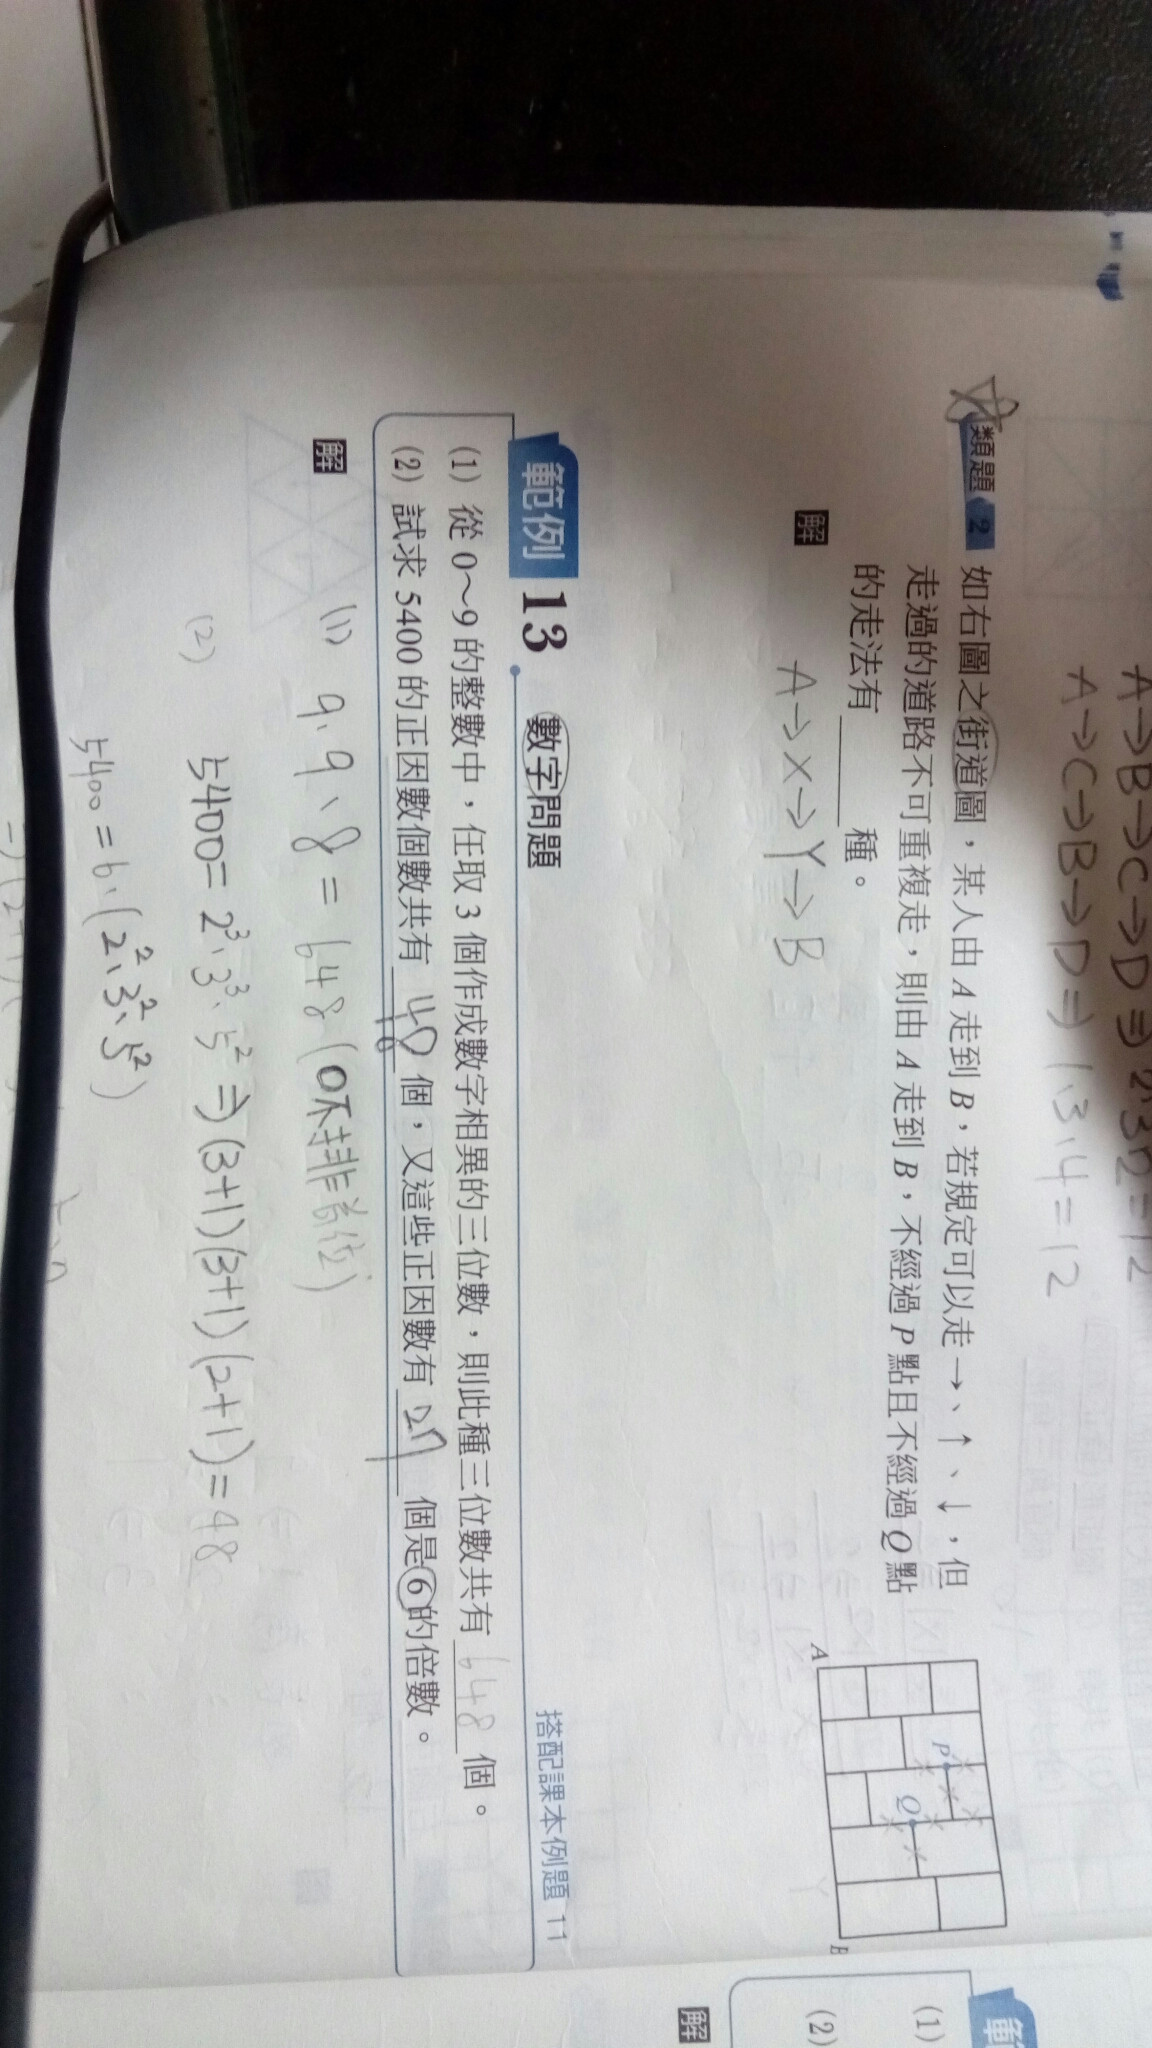 A→B→C→D⇒2、3、2=12
A→C→B→D⇒1、3、4=12
類題 2 如右圖之街道圖，某人由 A 走到 B，若規定可以走 →、↑、↓，但
走過的道路不可重複走，則由 A 走到 B，不經過 P 點且不經過 Q 點
的走法有 種。
A
P
Q
B
解
A→X→Y→B
範例 13 數字問題
搭配課本例題 11
(1) 從 0～9 的整數中，任取 3 個作成數字相異的三位數，則此種三位數共有 648 個。
(2) 試求 5400 的正因數個數共有 48 個，又這些正因數有 27 個是 6 的倍數。
解
(1) 9、9、8=648(0不排首位)
(2) 5400=2³、3³、5²⇒(3+1)(3+1)(2+1)=48
5400=6、(2²、3²、5²)
(1)
(2)
解